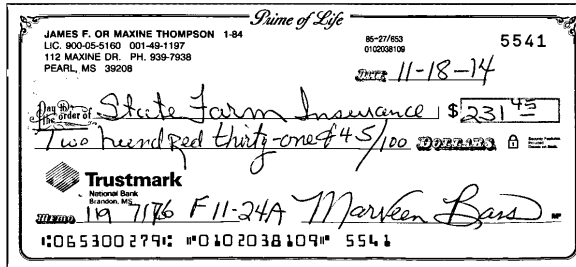 Prime of Life
JAMES F. OR MAXINE THOMPSON 1-84
LIC. 900-05-5160 001-49-1197
112 MAXINE DR. PH. 939-7938
PEARL, MS 39208
85-27/653
0102038109
5541
DATE 11-18-14
Pay to the order of State Farm Insurance $ 231 45
Two hundred thirty-one & 45/100 DOLLARS
Security Features Included. Details on Back.
Trustmark
National Bank
Brandon, MS
MEMO 119 7176 F11-24A Marveen Bass MP
⑆065300279⑆ ⑈0102038109⑈ 5541